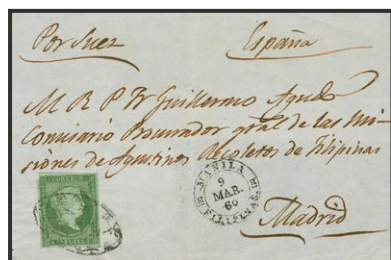 Por Suez España
M R P Fr Guillermo Agudo
Comisario Procurador gral de las Mi-
siones de Agustinos Recoletos de Filipinas
Madrid
MANILA
9
MAR.
60
FILIPINAS
CORREOS